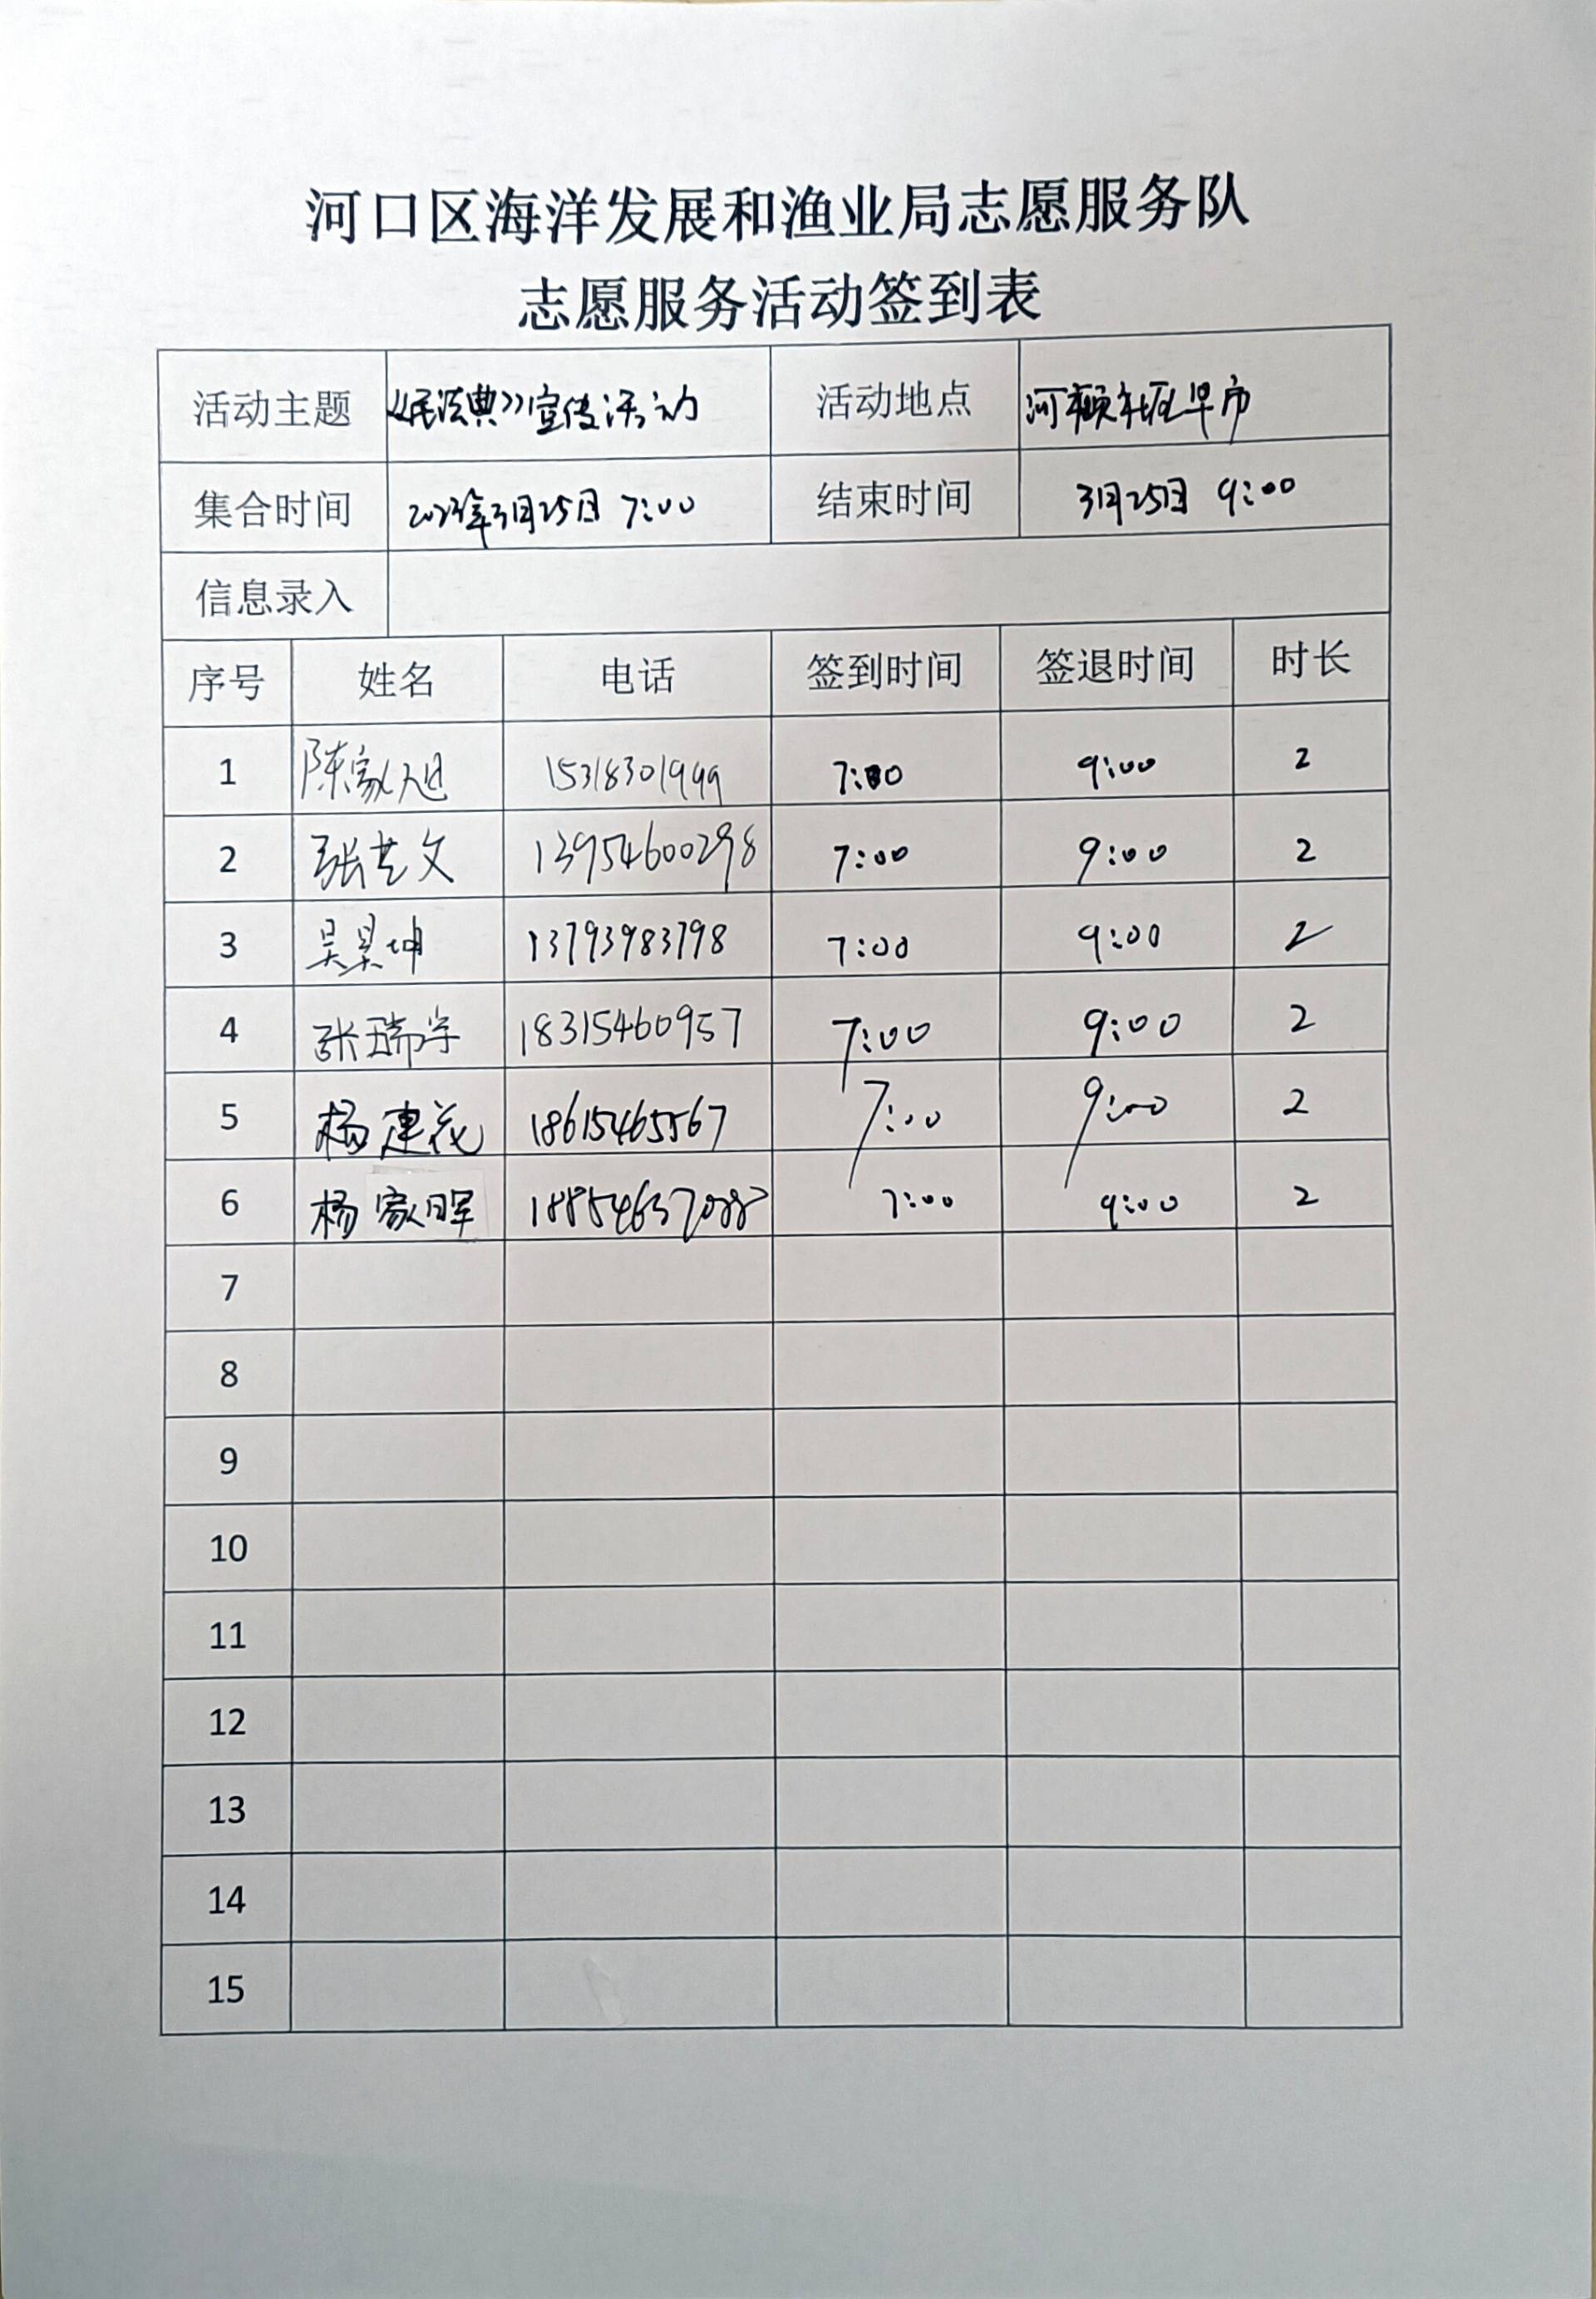 河口区海洋发展和渔业局志愿服务队
志愿服务活动签到表
活动主题 《民法典》宣传活动 活动地点 河颐社区早市
集合时间 2023年3月25日 7:00 结束时间 3月25日 9:00
信息录入
序号 姓名 电话 签到时间 签退时间 时长
1 陈家旭 15318301999 7:00 9:00 2
2 张艺文 13954600298 7:00 9:00 2
3 吴昊坤 13793983798 7:00 9:00 2
4 张瑞宇 18315460957 7:00 9:00 2
5 杨建花 18615465567 7:00 9:00 2
6 杨家晖 7:00 9:00 2
7
8
9
10
11
12
13
14
15